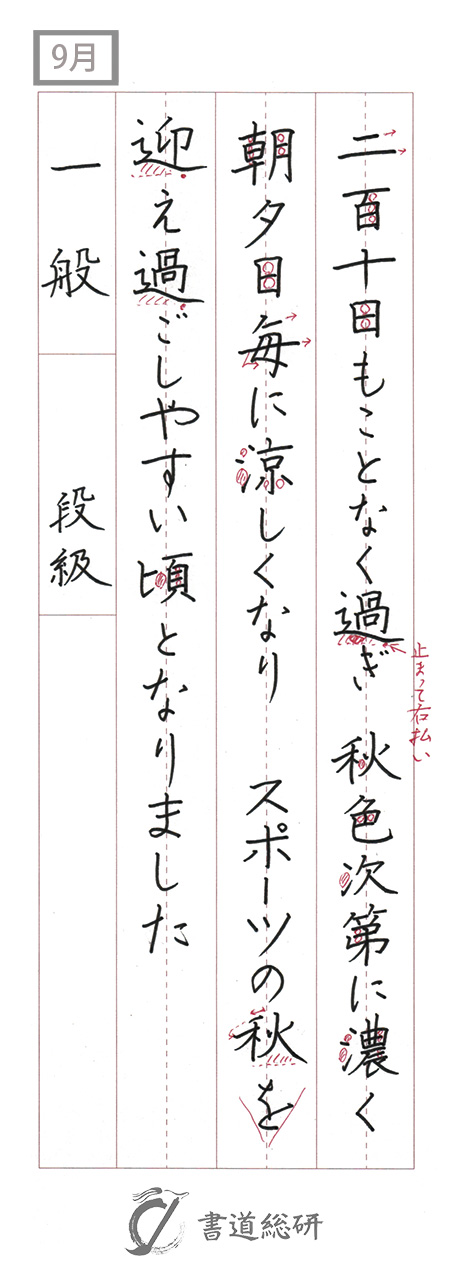 9月
二百十日もことなく過ぎ 秋色次第に濃く
止まって右払い
朝夕日毎に涼しくなり スポーツの秋を
迎え過ごしやすい頃となりました
一般
段級
書道総研